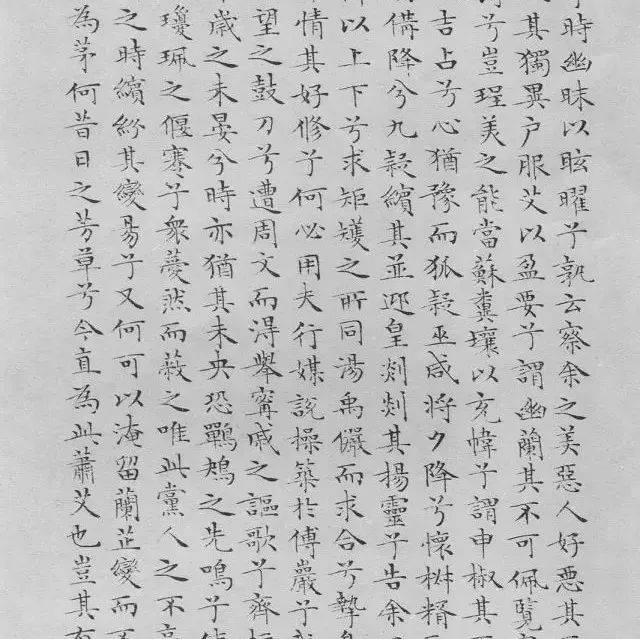 時幽昧以眩曜兮孰云察余之美惡人好惡其
其獨異户服艾以盈要兮謂幽蘭其不可佩覽
兮豈珵美之能當蘇糞壤以充幃兮謂申椒其
吉占兮心猶豫而狐疑巫咸將夕降兮懷椒糈
備降兮九疑繽其並迎皇剡剡其揚靈兮告余
以上下兮求矩矱之所同湯禹儼而求合兮摯
情其好修兮何必用夫行媒說操築於傅巖兮
望之鼓刀兮遭周文而得舉甯戚之謳歌兮齊
歲之未晏兮時亦猶其未央恐鶗鴂之先鳴兮
瓊珮之偃蹇兮衆薆然而蔽之唯此黨人之不
之時繽紛其變易兮又何可以淹留蘭芷變而
為茅何昔日之芳草兮今直為此蕭艾也豈其